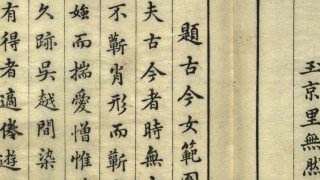 玉京里無然
題古今女範
夫古今者時無
不蘄肖形而蘄
媸而揣愛憎惟
久跡吳越間染
有得者適倦遊